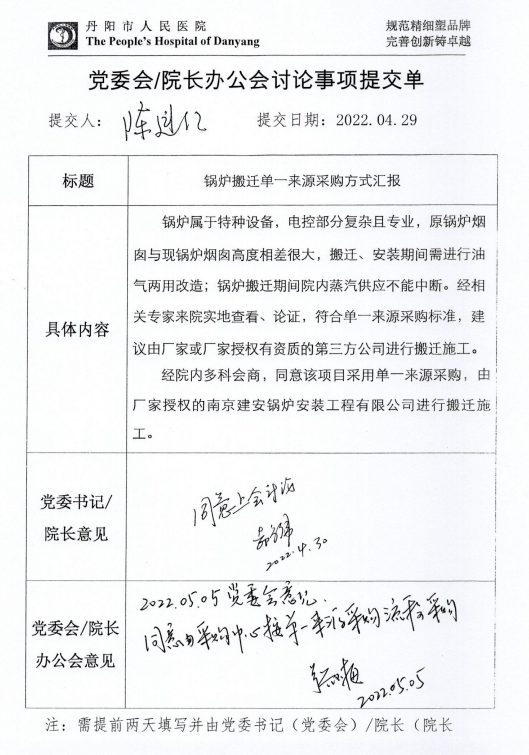 丹阳市人民医院
The People's Hospital of Danyang
规范精细塑品牌
完善创新铸卓越
党委会/院长办公会讨论事项提交单
提交人：
提交日期：2022.04.29
标题
锅炉搬迁单一来源采购方式汇报
具体内容
锅炉属于特种设备，电控部分复杂且专业，原锅炉烟
囱与现锅炉烟囱高度相差很大，搬迁、安装期间需进行油
气两用改造；锅炉搬迁期间院内蒸汽供应不能中断。经相
关专家来院实地查看、论证，符合单一来源采购标准，建
议由厂家或厂家授权有资质的第三方公司进行搬迁施工。
经院内多科会商，同意该项目采用单一来源采购，由
厂家授权的南京建安锅炉安装工程有限公司进行搬迁施
工。
党委书记/
院长意见
同意上会讨论
2022.4.30
党委会/院长
办公会意见
2022.05.05 党委会意见.
同意由采购中心按单一来源采购流程采购
2022.05.05
注：需提前两天填写并由党委书记（党委会）/院长（院长